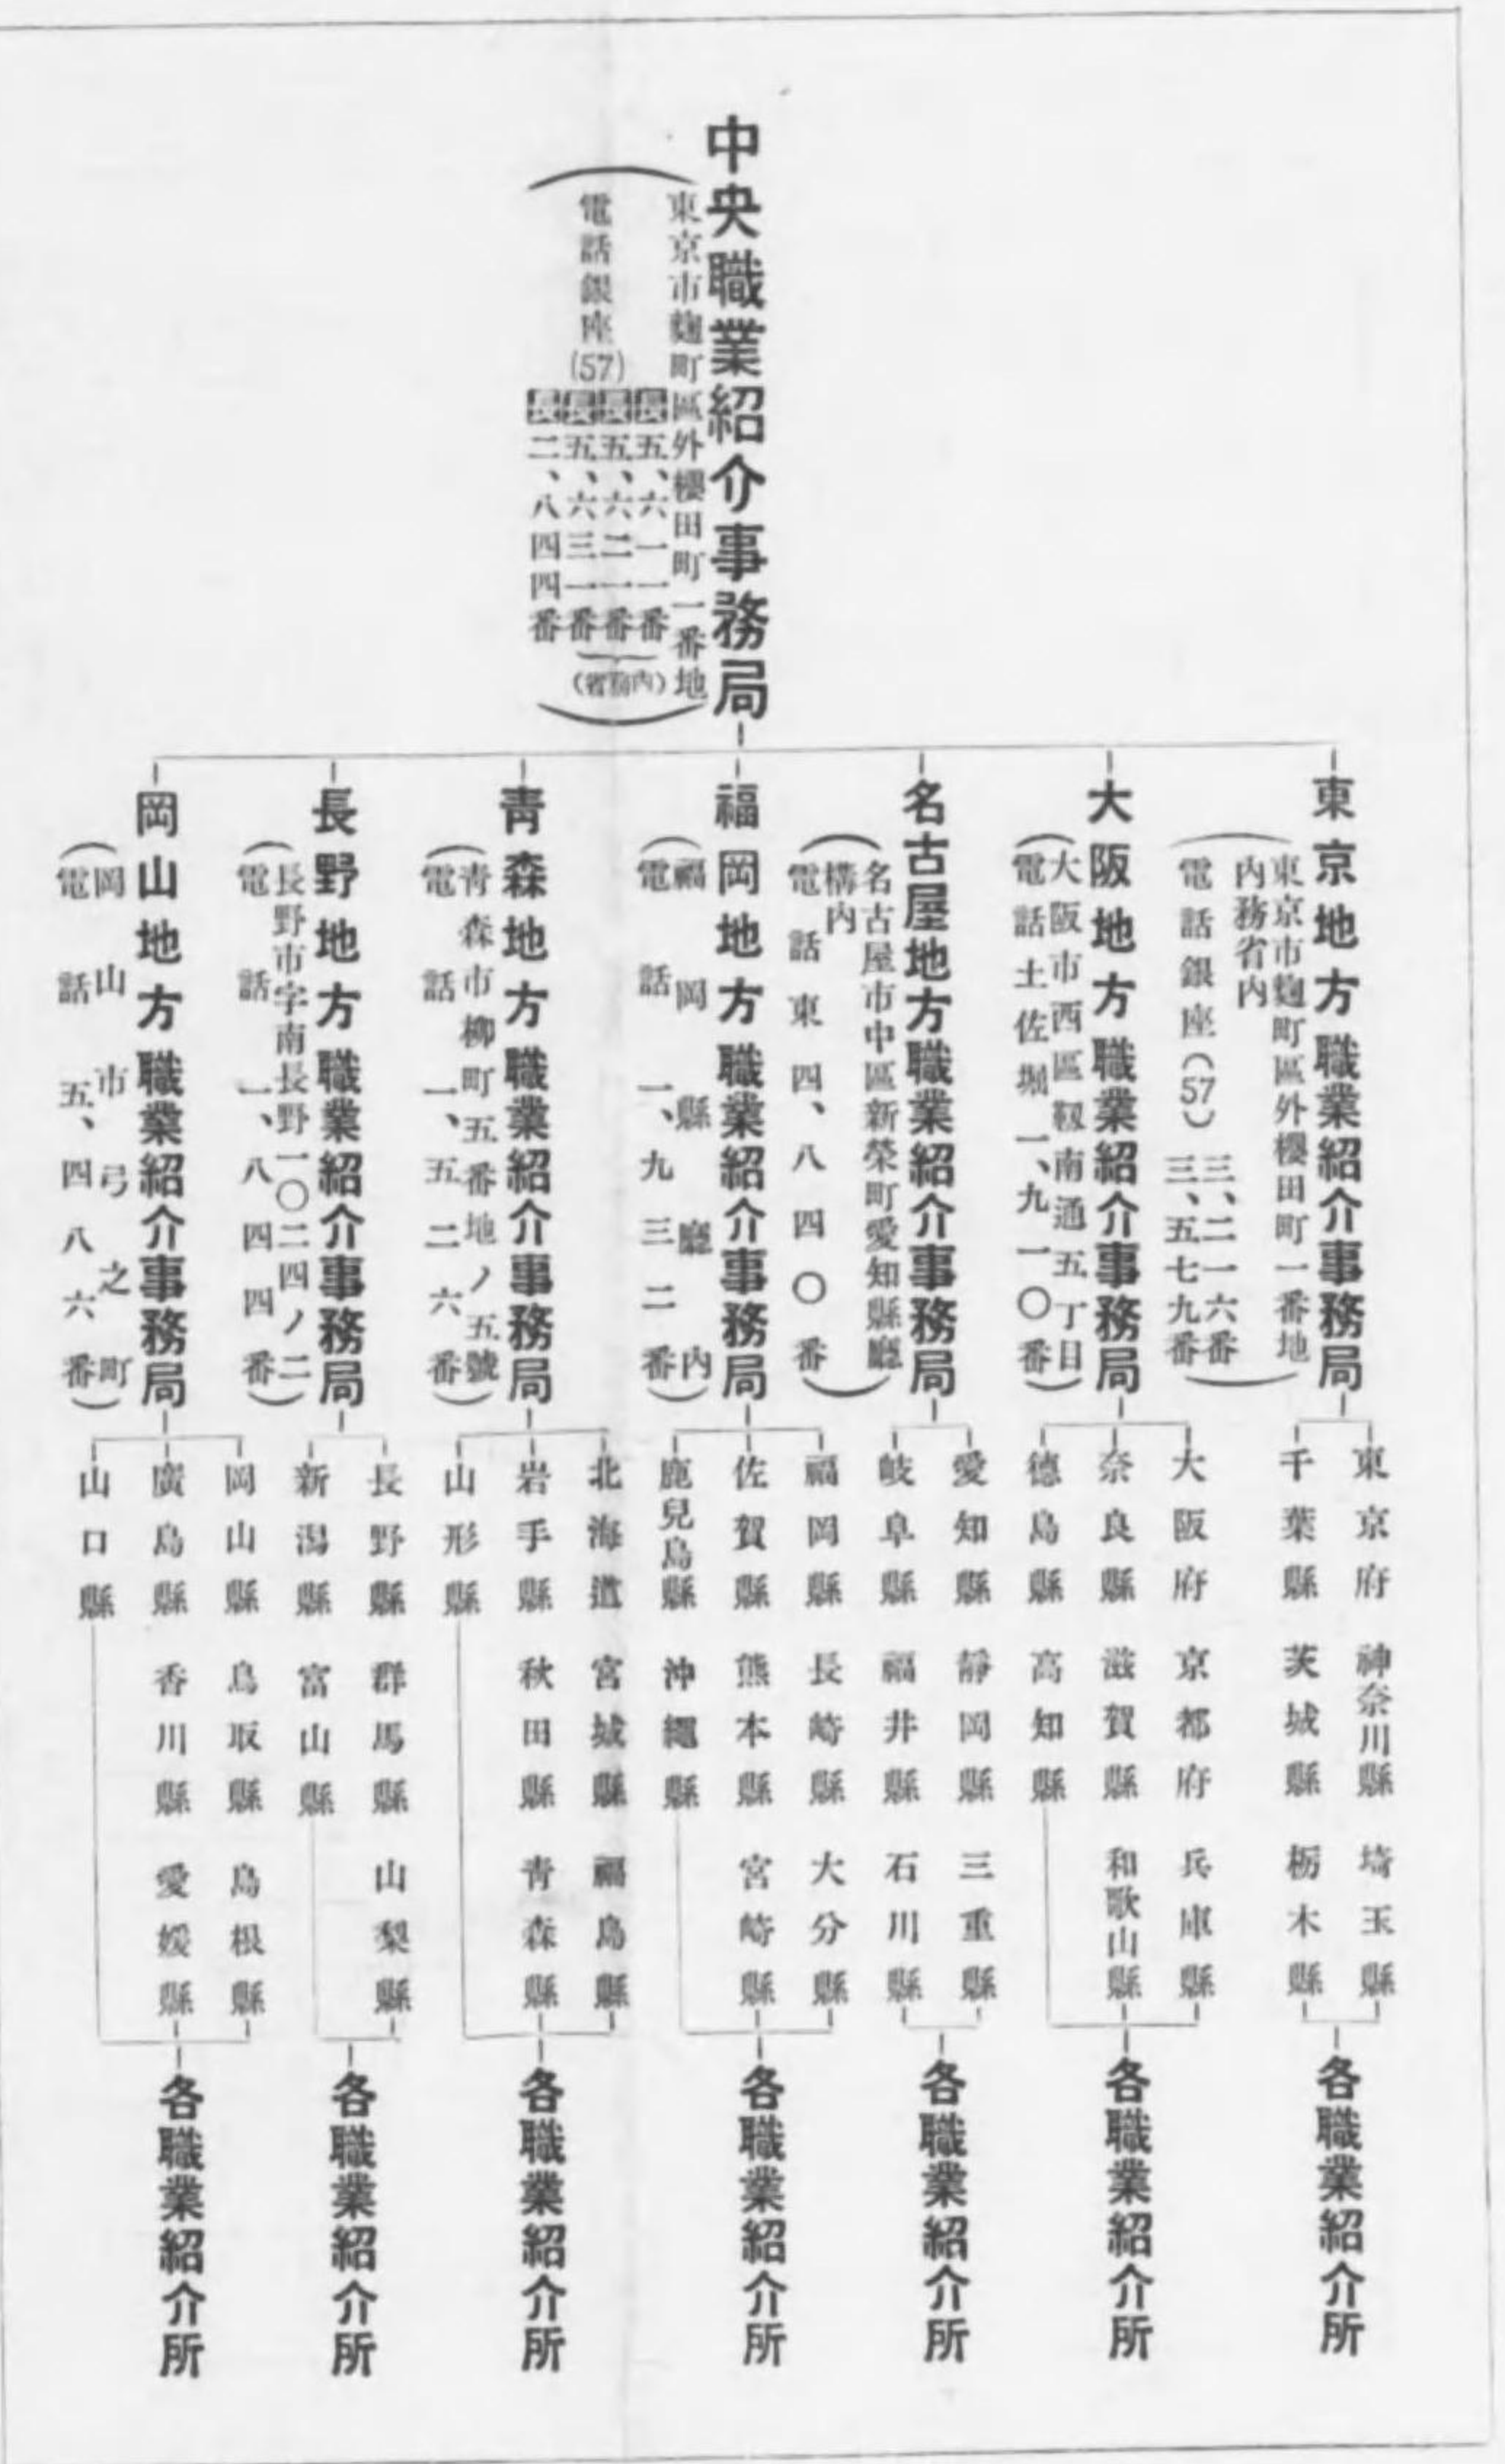 中央職業紹介事務局
東京市麴町區外櫻田町一番地
電話銀座(57)
長五、六一一番
長五、六二一番
長五、六三一番
(內務省)
長二、八四四番
東京地方職業紹介事務局
東京市麴町區外櫻田町一番地
內務省內
電話銀座(57)
三、二一六番
三、五七九番
東京府 神奈川縣 埼玉縣
千葉縣 茨城縣 栃木縣
各職業紹介所
大阪地方職業紹介事務局
(大阪市西區靱南通五丁目
電話土佐堀一、九一〇番)
大阪府 京都府 兵庫縣
奈良縣 滋賀縣 和歌山縣
德島縣 高知縣
各職業紹介所
名古屋地方職業紹介事務局
(名古屋市中區新榮町愛知縣廳
構內
電話東四、八四〇番)
愛知縣 靜岡縣 三重縣
岐阜縣 福井縣 石川縣
各職業紹介所
福岡地方職業紹介事務局
(福岡縣廳內
電話一、九三二番)
福岡縣 長崎縣 大分縣
佐賀縣 熊本縣 宮崎縣
鹿兒島縣 沖繩縣
各職業紹介所
靑森地方職業紹介事務局
(靑森市柳町五番地ノ五號
電話一、五二六番)
北海道 宮城縣 福島縣
岩手縣 秋田縣 靑森縣
山形縣
各職業紹介所
長野地方職業紹介事務局
(長野市字南長野一〇二四ノ二
電話一、八四四番)
長野縣 群馬縣 山梨縣
新潟縣 富山縣
各職業紹介所
岡山地方職業紹介事務局
(岡山市弓之町
電話五、四八六番)
岡山縣 鳥取縣 島根縣
廣島縣 香川縣 愛媛縣
山口縣
各職業紹介所